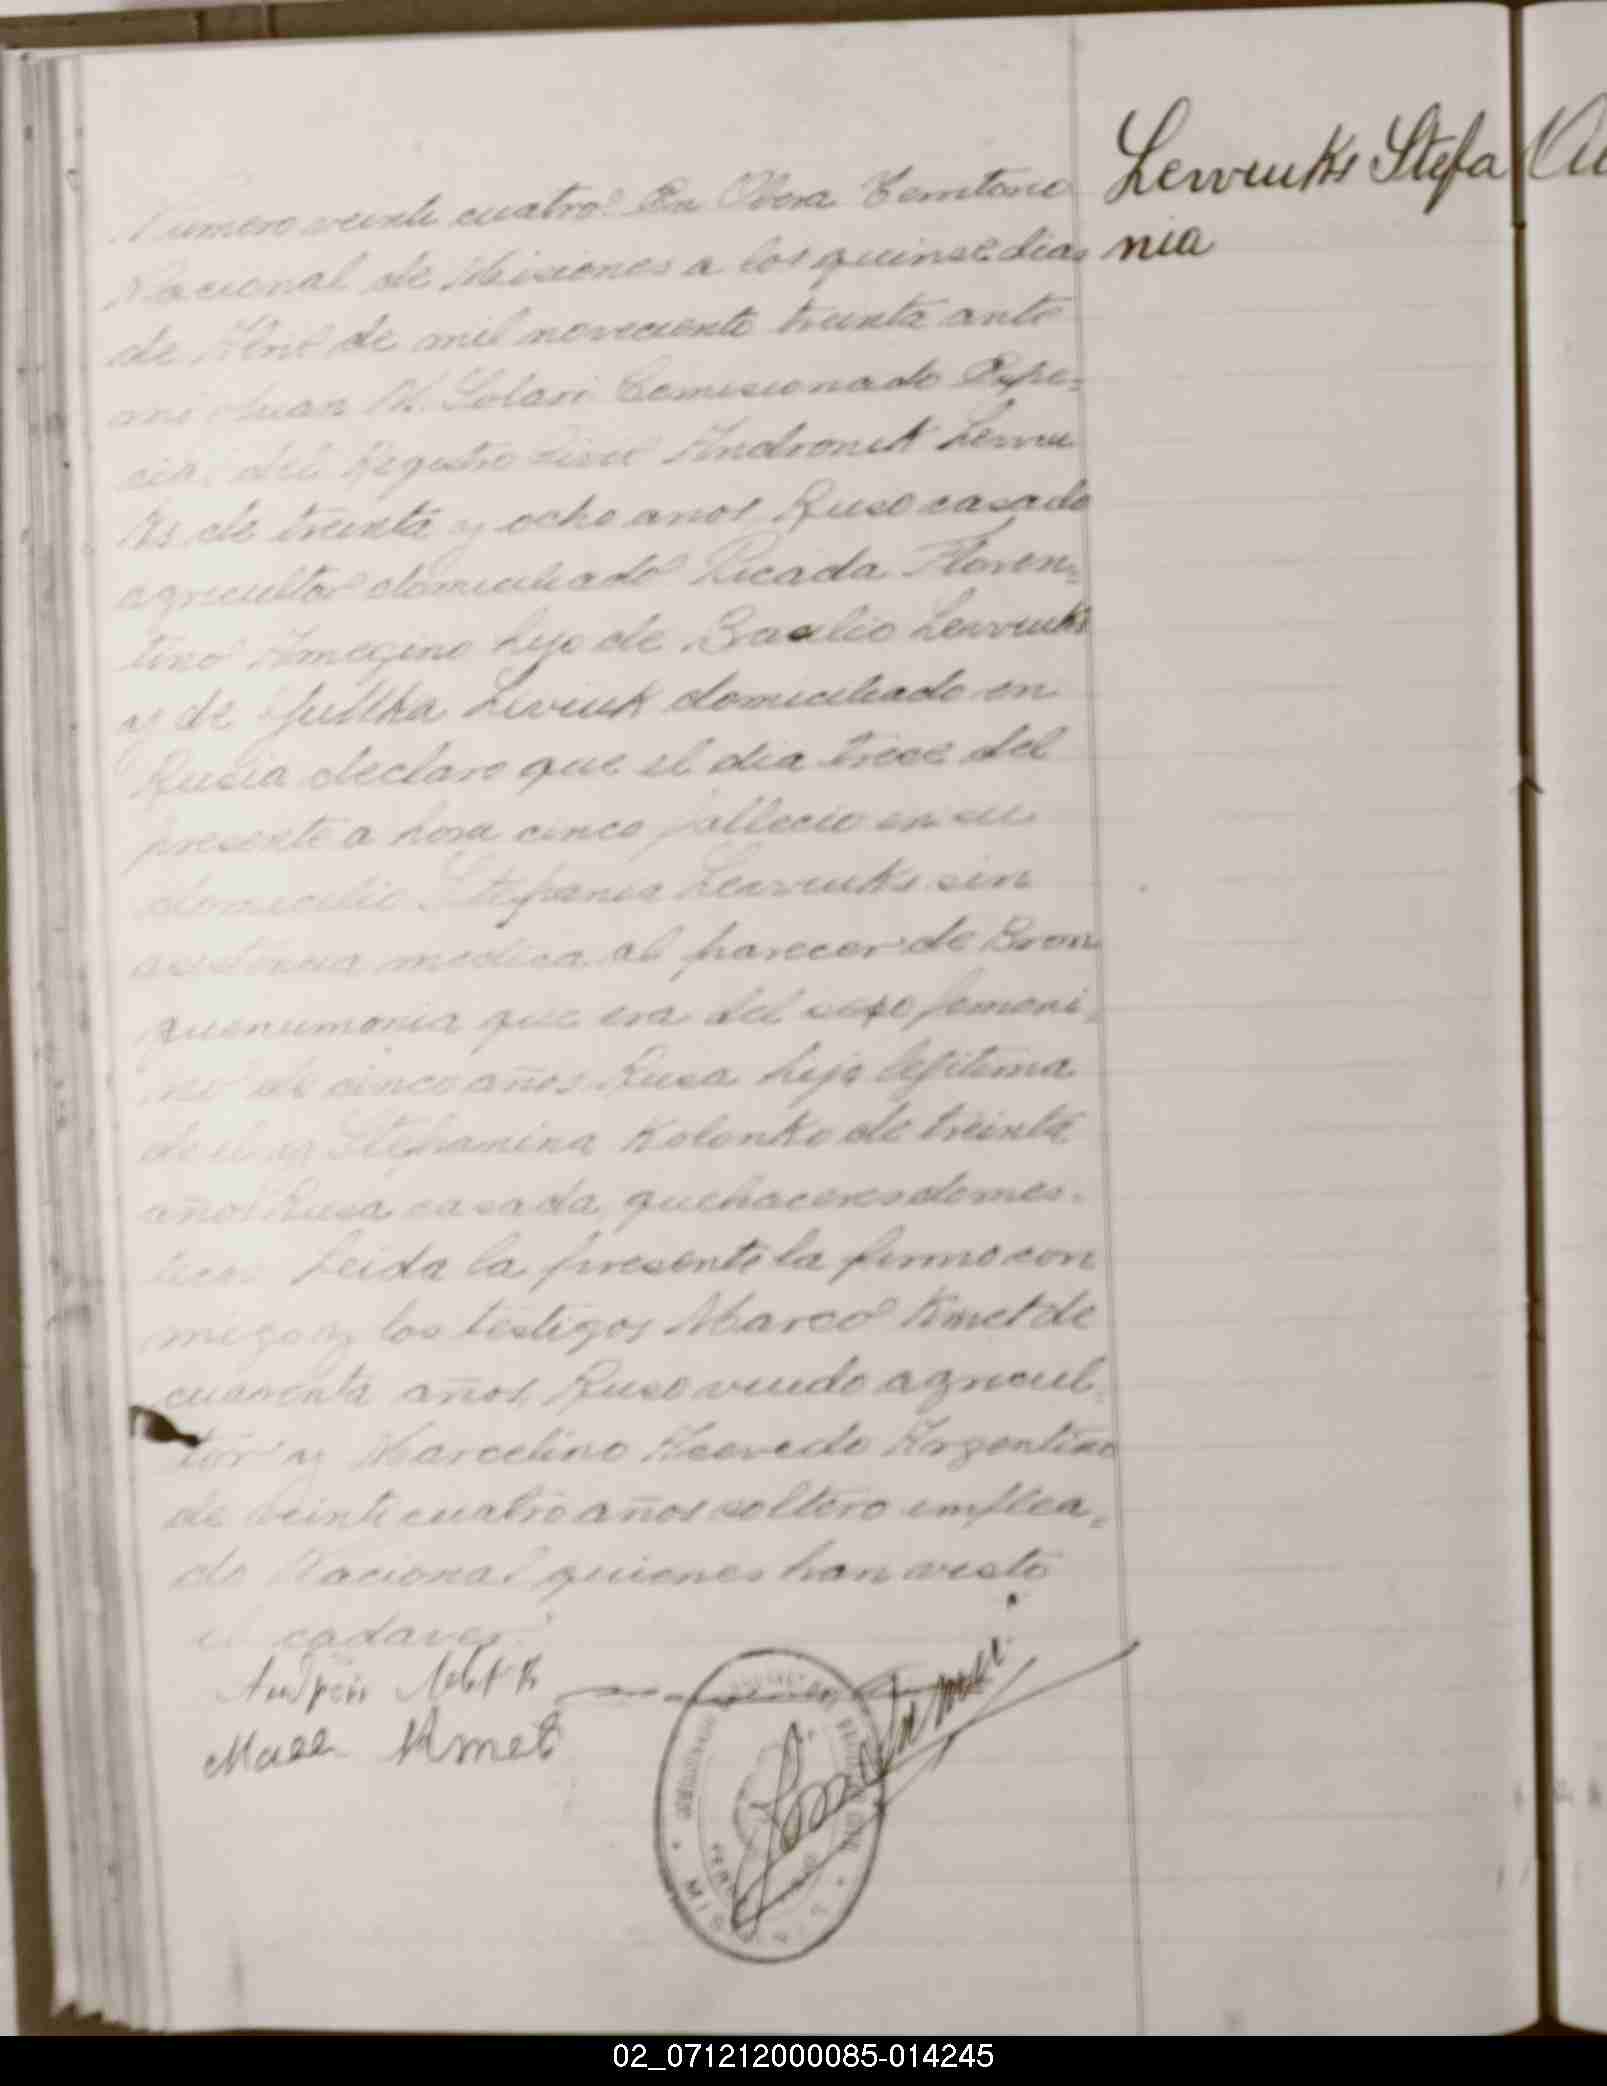 Lewuks Stefa
nia
Numero veinti cuatro. En Obera Territorio
Nacional de Misiones a los quinse dias
de Abril de mil noveciento treinta ante
mi Juan M. Solari Comisionado Espe-
cial del Registro Civil Andronik Lewu
ks de treinta y ocho anos Ruso casado
agricultor domiciliado Picada Floren-
tino Amegino hijo de Basilio Lewuks
y de domiciliado en
Rusia declaro que el dia trece del
presente a hora cinco fallecio en su
domicilio Stefania Lewuks sin
asistencia medica al parecer de Bron
quenumonia que era del sexo femeni-
no de cinco años Rusa hija lejitima
de el y Kolonko de treinta
años Rusa casada quehaceres domes-
ticos Leida la presente la firmo con
migo y los testigos Marco Kmet de
cuarenta años Ruso viudo agricul-
tor y Marcelino Acevedo Argentino
de veinti cuatro años soltero emplea-
do Nacional quienes han visto
el cadaver.
Kmet
02_071212000085-014245